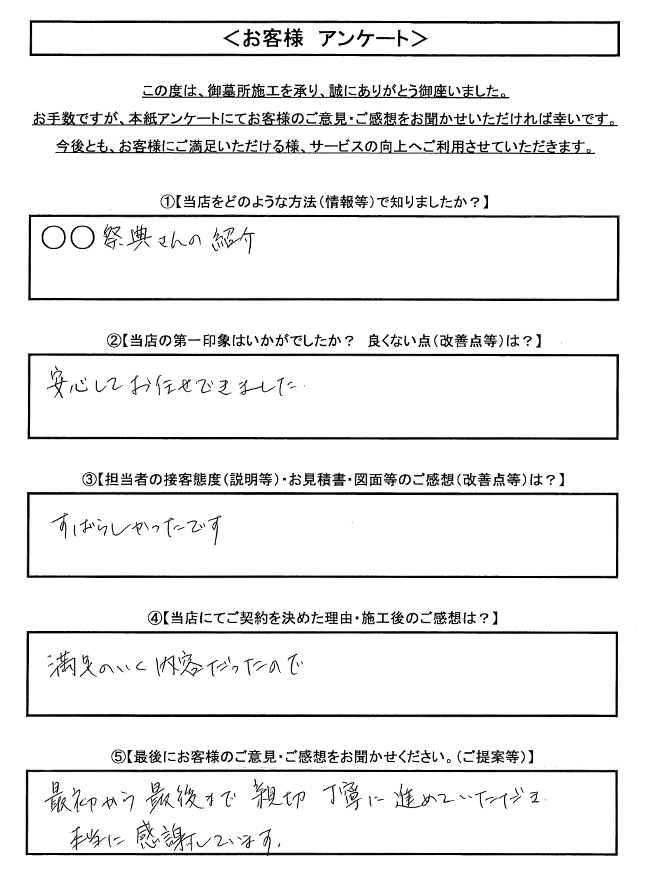 ＜お客様　アンケート＞
この度は、御墓所施工を承り、誠にありがとう御座いました。
お手数ですが、本紙アンケートにてお客様のご意見・ご感想をお聞かせいただければ幸いです。
今後とも、お客様にご満足いただける様、サービスの向上へご利用させていただきます。
①【当店をどのような方法（情報等）で知りましたか？】
〇〇祭典さんの紹介
②【当店の第一印象はいかがでしたか？　良くない点（改善点等）は？】
安心してお任せできました.
③【担当者の接客態度（説明等）・お見積書・図面等のご感想（改善点等）は？】
すばらしかったです
④【当店にてご契約を決めた理由・施工後のご感想は？】
満足のいく内容だったので
⑤【最後にお客様のご意見・ご感想をお聞かせください。（ご提案等）】
最初から最後まで親切丁寧に進めていただき.
本当に感謝しています.